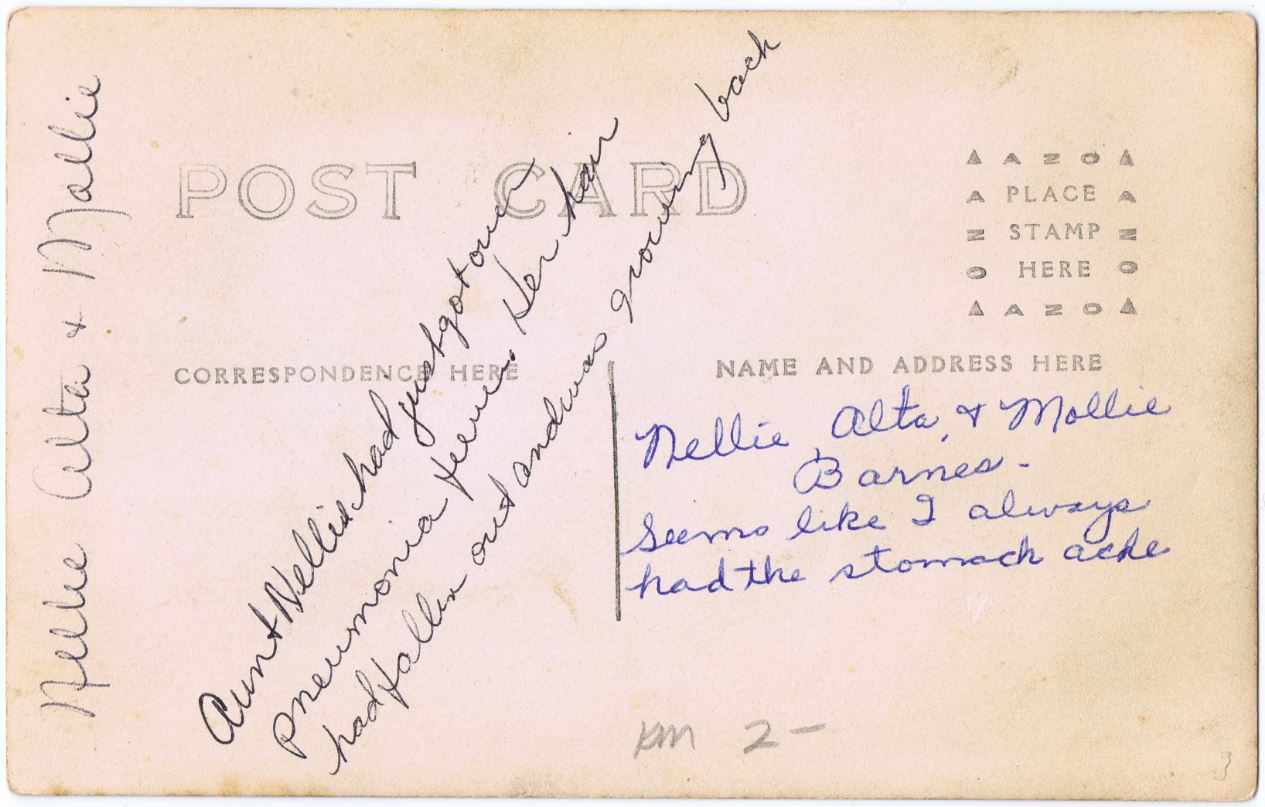 Nellie Alta & Mollie
POST CARD
Aunt Nellie had just got over
pneumonia fever. Her hair
had fallen out and was growing back
AZO
A PLACE A
Z STAMP Z
O HERE O
AZO
CORRESPONDENCE HERE
NAME AND ADDRESS HERE
Nellie, Alta, & Mollie
Barnes -
Seems like I always
had the stomach ache
KM 2-
3